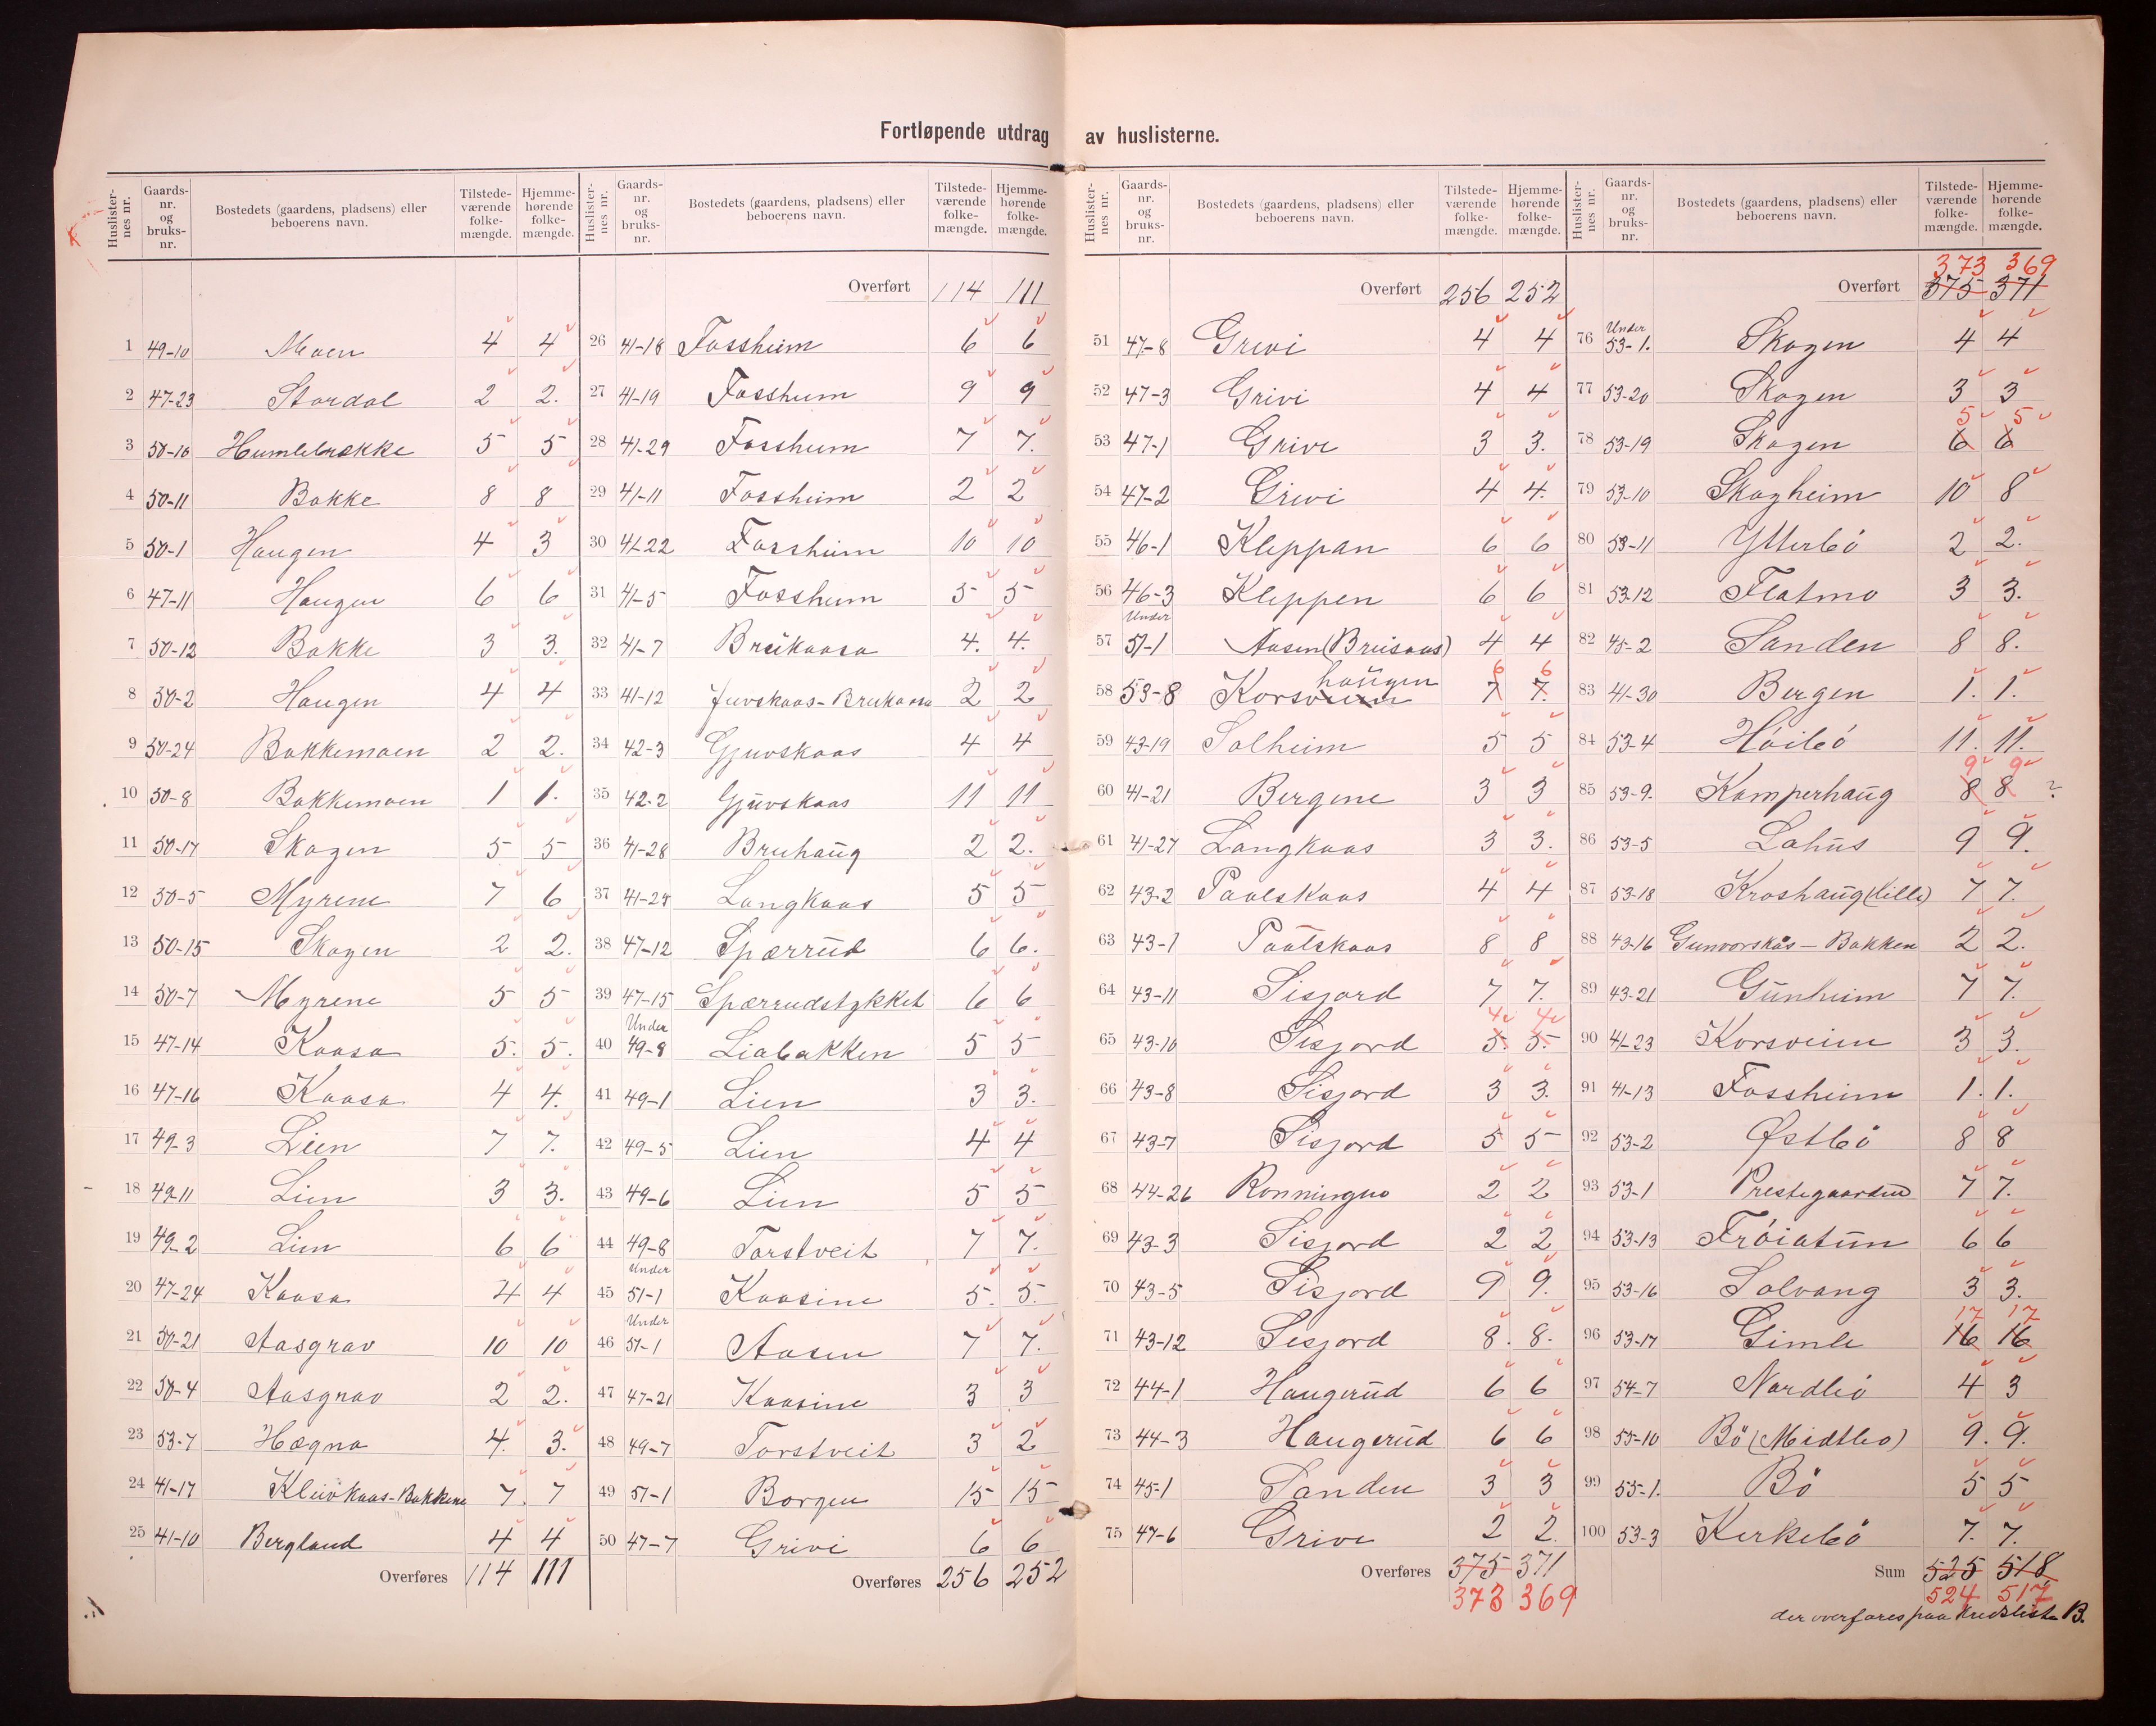 Fortløpende utdrag av huslisterne.
Huslisternes nr. Gaards-nr. og bruks-nr. Bostedets (gaardens, pladsens) eller beboerens navn. Tilstedeværende folkemængde. Hjemmehørende folkemængde.
1 49-10 Moen 4 4
2 47-23 Stordal 2 2.
3 50-16 Humlebrække 5 5
4 50-11 Bakke 8 8
5 50-1 Haugen 4 3
6 47-11 Haugen 6 6
7 50-12 Bakke 3 3.
8 50-2 Haugen 4 4
9 50-24 Bakkemoen 2 2.
10 50-8 Bakkemoen 1 1.
11 50-17 Skogen 5 5
12 50-5 Myrene 7 6
13 50-15 Skogen 2 2.
14 50-7 Myrene 5 5
15 47-14 Kaasa 5. 5.
16 47-16 Kaasa 4 4.
17 49-3 Lien 7 7.
18 49-11 Lien 3 3.
19 49-2 Lien 6 6
20 47-24 Kaasa 4 4
21 50-21 Aasgrav 10 10
22 50-4 Aasgrav 2 2.
23 53-7 Hægna 4. 3.
24 41-17 Kleivkaas-Bakkene 7. 7
25 41-10 Bergland 4 4
Overføres 114 111
Huslisternes nr. Gaards-nr. og bruks-nr. Bostedets (gaardens, pladsens) eller beboerens navn. Tilstedeværende folkemængde. Hjemmehørende folkemængde.
Overført 114 111
26 41-18 Fossheim 6 6
27 41-19 Fossheim 9 9
28 41-29 Fossheim 7 7.
29 41-11 Fossheim 2 2
30 41-22 Fossheim 10 10
31 41-5 Fossheim 5 5
32 41-7 Breikaasa 4. 4.
33 41-12 Juvskaas-Breikaasa 2 2
34 42-3 Gjuvskaas 4 4
35 42-2 Gjuvskaas 11 11
36 41-28 Bruhaug 2 2.
37 41-24 Langkaas 5 5
38 47-12 Spærrud 6 6.
39 47-15 Spærrudstykket 6 6
40 Under 49-8 Liabakken 5 5
41 49-1 Lien 3 3.
42 49-5 Lien 4 4
43 49-6 Lien 5 5
44 49-8 Torstveit 7 7.
45 Under 51-1 Kaasine 5. 5.
46 Under 51-1 Aasen 7 7.
47 47-21 Kaasine 3 3
48 49-7 Torstveit 3 2
49 51-1 Borgen 15 15
50 47-7 Grivi 6 6
Overføres 256 252
Huslisternes nr. Gaards-nr. og bruks-nr. Bostedets (gaardens, pladsens) eller beboerens navn. Tilstedeværende folkemængde. Hjemmehørende folkemængde.
Overført 256 252
51 47-8 Grivi 4 4
52 47-3 Grivi 4 4
53 47-1 Grivi 3 3.
54 47-2 Grivi 4 4.
55 46-1 Kleppan 6 6
56 46-3 Kleppen 6 6
57 Under 51-1 Aasen (Breisaas) 4 4
58 53-8 Korsveien haugen 7 7. 6 6
59 43-19 Solheim 5 5
60 41-21 Bergene 3 3
61 41-27 Langkaas 3 3.
62 43-2 Paalskaas 4 4
63 43-1 Paalskaas 8 8
64 43-11 Sisjord 7 7.
65 43-10 Sisjord 5. 5. 4 4
66 43-8 Sisjord 3 3.
67 43-7 Sisjord 5 5
68 44-26 Rønningen 2 2
69 43-3 Sisjord 2 2
70 43-5 Sisjord 9 9.
71 43-12 Sisjord 8. 8.
72 44-1 Haugerud 6 6
73 44-3 Haugerud 6 6
74 45-1 Sanden 3 3
75 47-6 Grivi 2 2.
Overføres 375 371
373 369
Huslisternes nr. Gaards-nr. og bruks-nr. Bostedets (gaardens, pladsens) eller beboerens navn. Tilstedeværende folkemængde. Hjemmehørende folkemængde.
373 369
Overført 375 371
76 Under 53-1. Skogen 4 4
77 53-20 Skogen 3 3
78 53-19 Skogen 6 6 5 5
79 53-10 Skogheim 10 8
80 53-11 Ytterbö 2 2.
81 53-12 Flatmo 3 3.
82 45-2 Sanden 8 8.
83 41-30 Bergen 1. 1.
84 53-4 Höibö 11. 11.
85 53-9. Kamperhaug 8 8 9 9 ?
86 53-5 Lahus 9 9.
87 53-18 Kroshaug (Lille) 7 7.
88 43-16 Gunvorskås-Bakken 2 2.
89 43-21 Gunheim 7 7.
90 41-23 Korsveien 3 3.
91 41-13 Fossheim 1. 1.
92 53-2 Østbö 8 8
93 53-1 Prestegaarden 7 7.
94 53-13 Fröiatun 6 6
95 53-16 Solvang 3 3.
96 53-17 Gimle 16 16 17 17
97 54-7 Nordbö 4 3
98 55-10 Bö (Midtbo) 9. 9.
99 55-1. Bö 5 5
100 53-3 Kirkebö 7. 7.
Sum 525 518
524 517
der overføres paa Kredsliste B.